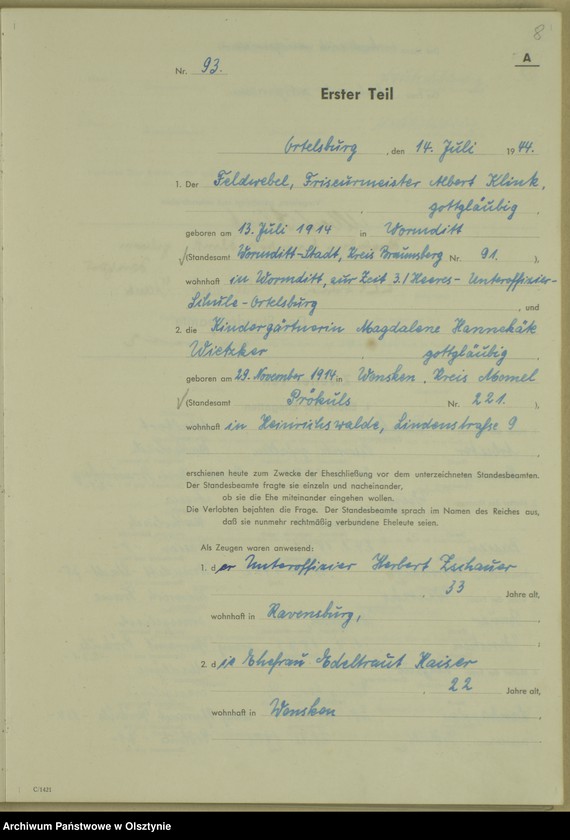 8
A
Nr. 93.
Erster Teil
Ortelsburg, den 14. Juli 1944.
1. Der Feldwebel, Friseurmeister Albert Klink,
gottgläubig,
geboren am 13. Juli 1914 in Wormditt
(Standesamt Wormditt-Stadt, Kreis Braunsberg Nr. 91. ),
wohnhaft in Wormditt, zur Zeit 3./Heeres-Unteroffizier-
Schule-Ortelsburg, und
2. die Kindergärtnerin Magdalene Hannekäte
Wietzker, gottgläubig,
geboren am 29. November 1914 in Wensken, Kreis Memel
(Standesamt Prökuls Nr. 221. ),
wohnhaft in Heinrichswalde, Lindenstraße 9
erschienen heute zum Zwecke der Eheschließung vor dem unterzeichneten Standesbeamten.
Der Standesbeamte fragte sie einzeln und nacheinander,
ob sie die Ehe miteinander eingehen wollen.
Die Verlobten bejahten die Frage. Der Standesbeamte sprach im Namen des Reiches aus,
daß sie nunmehr rechtmäßig verbundene Eheleute seien.
Als Zeugen waren anwesend:
1. der Unteroffizier Herbert Zschauer
, 33 Jahre alt,
wohnhaft in Ravensburg,
;
2. die Ehefrau Edeltraut Kaiser
, 22 Jahre alt,
wohnhaft in Wensken
.
C/1421
Archiwum Państwowe w Olsztynie